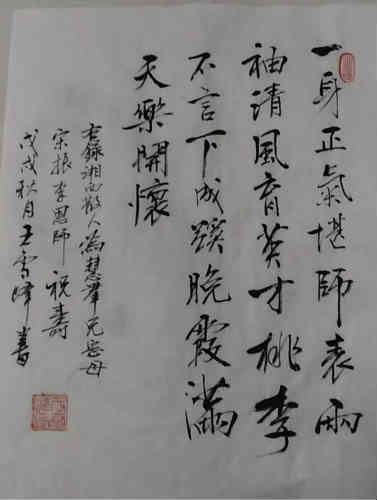 一身正氣堪師表兩
袖清風育英才桃李
不言下成蹊晚霞滿
天樂開懷
右錄湘西散人為慧羣兄岳母
宋振李恩師祝壽
戊戌秋月王雪峰書